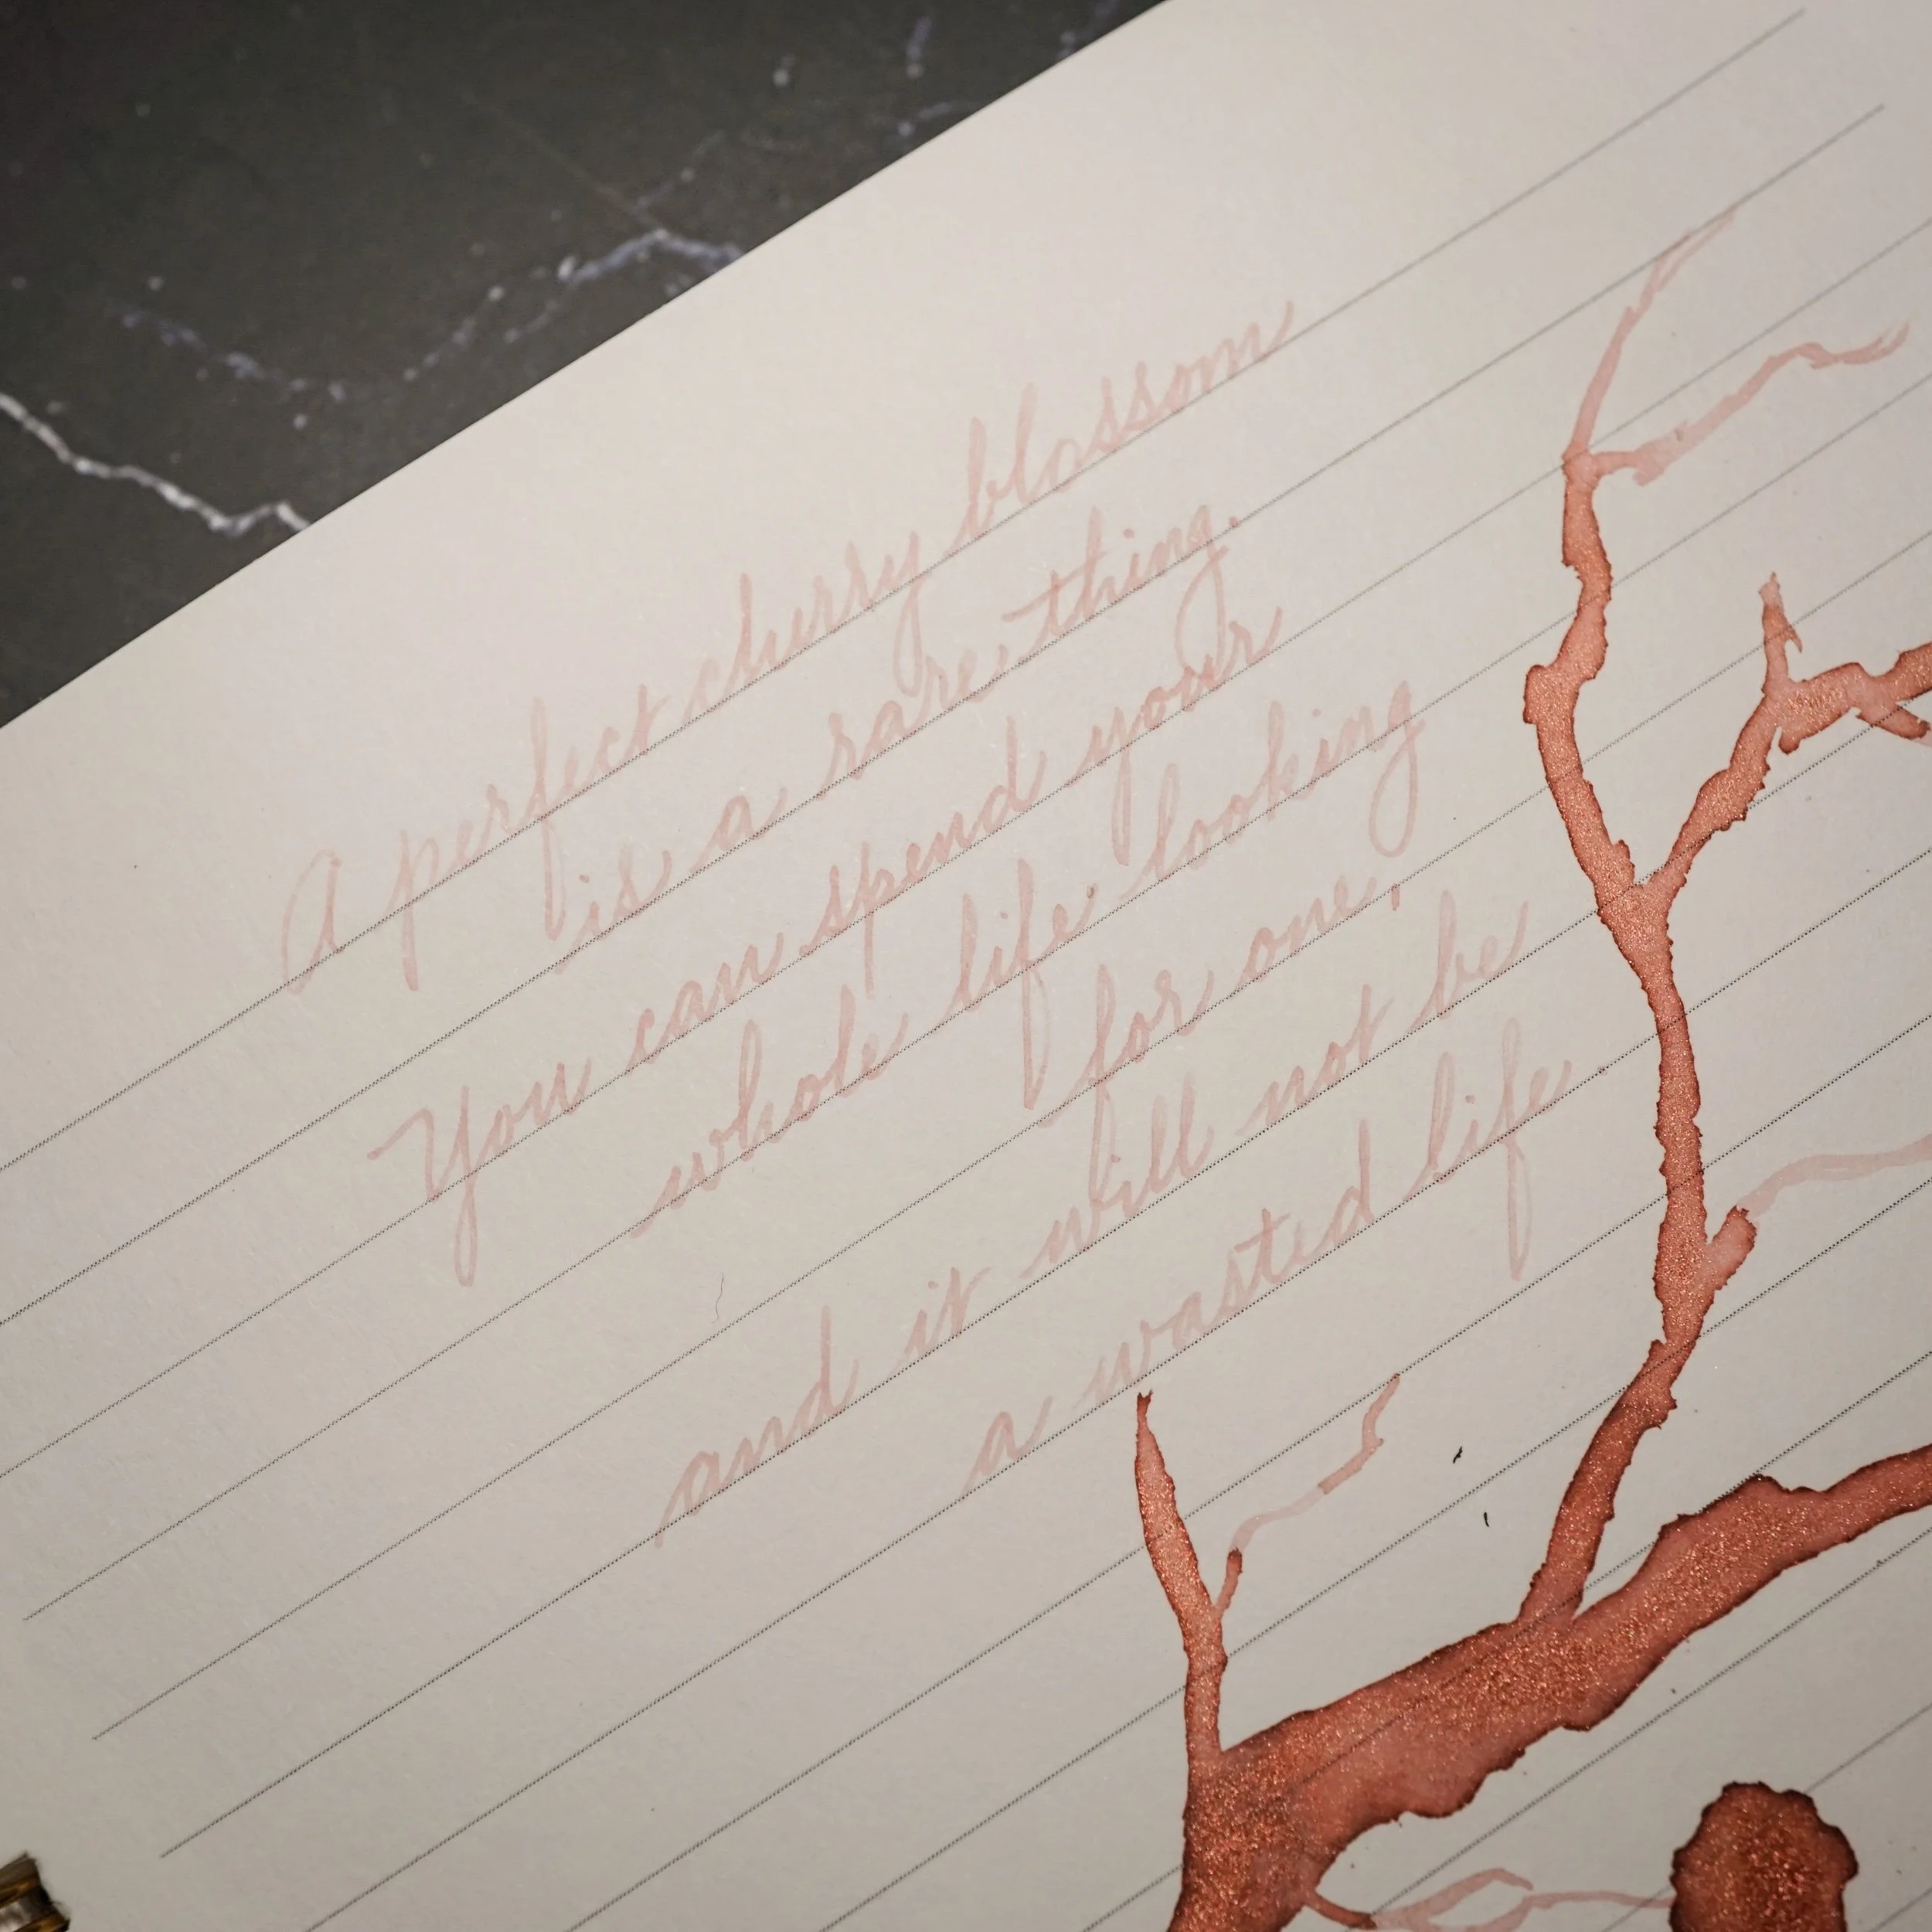 A perfect cherry blossom
is a rare thing.
You can spend your
whole life looking
for one,
and it will not be
a wasted life.